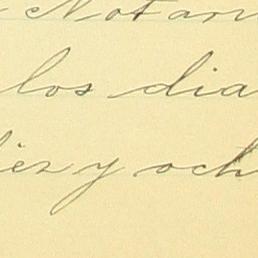 Notar
los dia
iez y och